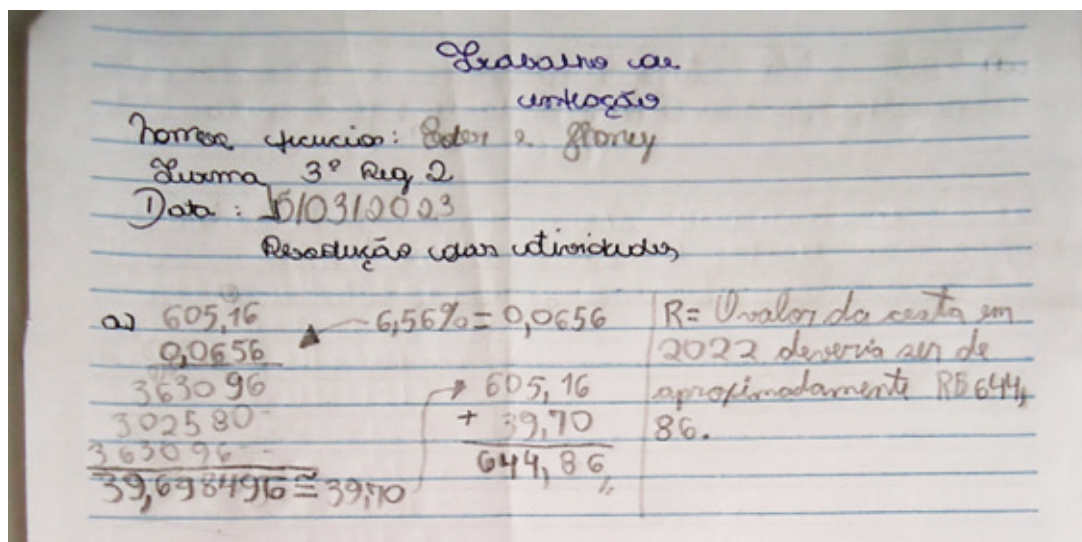 Trabalho de
inflação
Nomes fictícios: Ester e
Turma 3º Reg 2
Data: 15/03/2023
Resolução das atividades
a) 605,16
0,0656
363096
302580-
363096--
39,698496 ≅ 39,70
6,56% = 0,0656
605,16
+ 39,70
644,86
R= O valor da cesta em
2022 deveria ser de
aproximadamente R$ 644,
86.